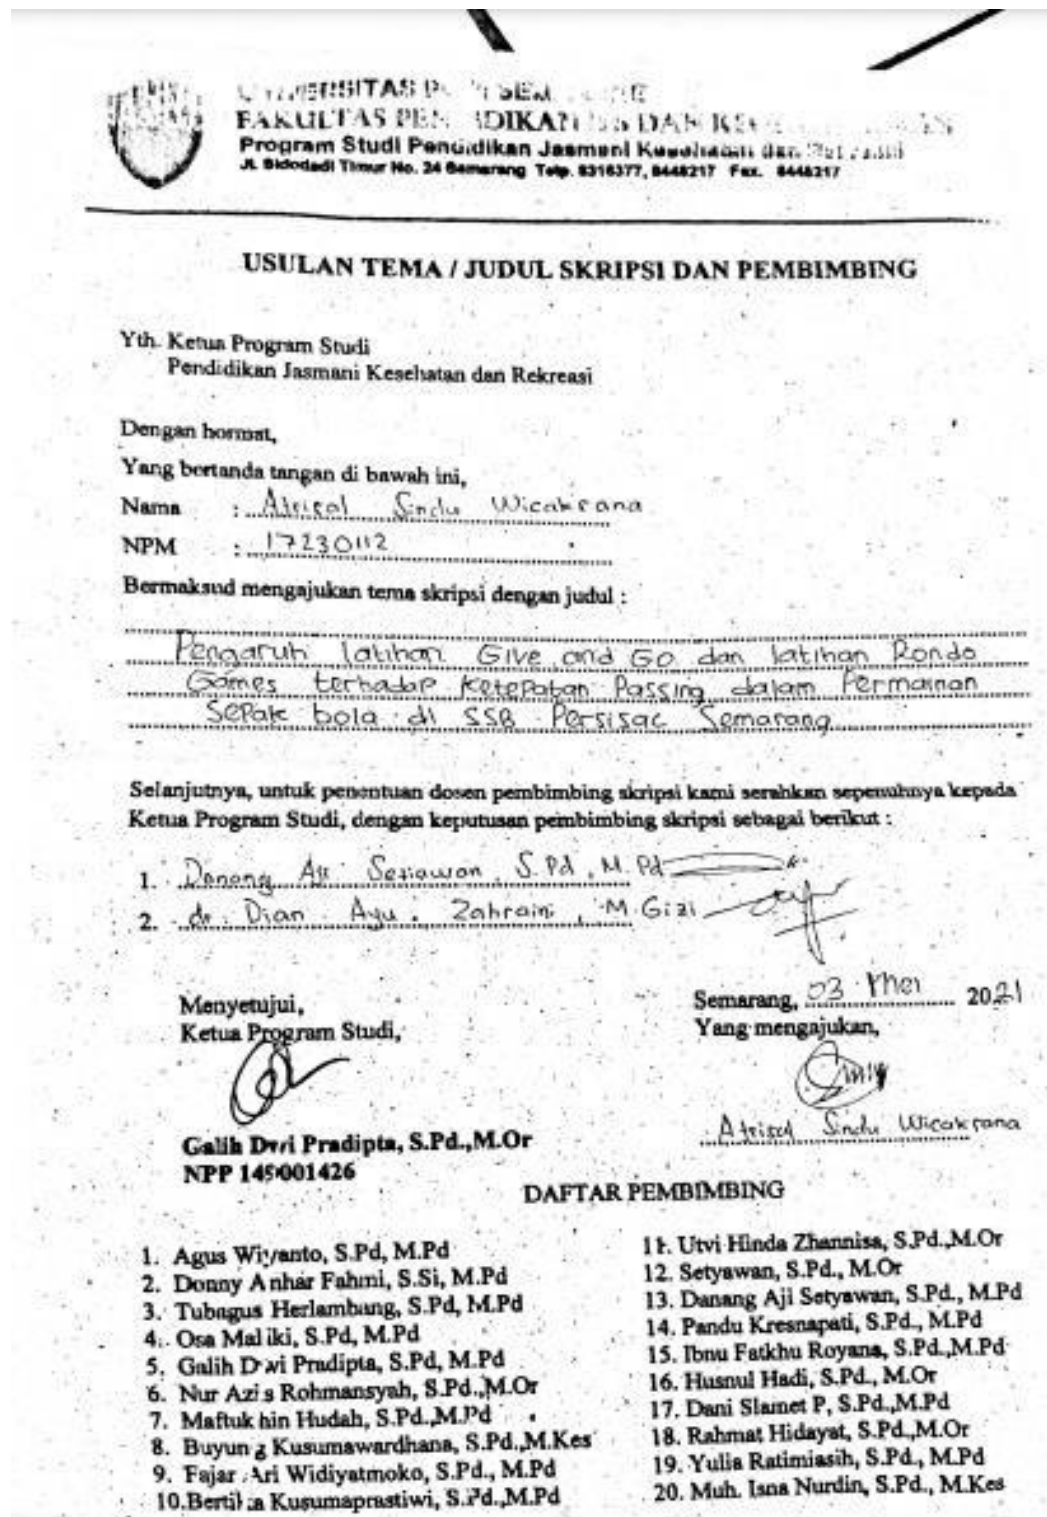 FAKULTAS
Program Studi Pendidikan Jasmani Kesehatan dan
Jl. Sidodadi Timur No. 24 Semarang Telp. 8316377, 8448217 Fax. 8448217
USULAN TEMA / JUDUL SKRIPSI DAN PEMBIMBING
Yth. Ketua Program Studi
Pendidikan Jasmani Kesehatan dan Rekreasi
Dengan hormat,
Yang bertanda tangan di bawah ini,
Nama : Sindu Wicaksana
NPM : 17230112
Bermaksud mengajukan tema skripsi dengan judul :
Pengaruh latihan Give and Go dan latihan Rondo
Games terhadap Ketepatan Passing dalam Permainan
Sepak bola di SSB Persisac Semarang
Selanjutnya, untuk penentuan dosen pembimbing skripsi kami serahkan sepenuhnya kepada
Ketua Program Studi, dengan keputusan pembimbing skripsi sebagai berikut :
1. Danang Aji Setiawan, S.Pd, M.Pd
2. dr. Dian Ayu Zahraini, M Gizi
Menyetujui,
Ketua Program Studi,
Galih Dwi Pradipta, S.Pd.,M.Or
NPP 149001426
Semarang, 03 Mei 2021
Yang mengajukan,
Sindu Wicaksana
DAFTAR PEMBIMBING
1. Agus Wiyanto, S.Pd, M.Pd
2. Donny Anhar Fahmi, S.Si, M.Pd
3. Tubagus Herlambang, S.Pd, M.Pd
4. Osa Maliki, S.Pd, M.Pd
5. Galih Dwi Pradipta, S.Pd, M.Pd
6. Nur Azis Rohmansyah, S.Pd.,M.Or
7. Maftukhin Hudah, S.Pd.,M.Pd
8. Buyung Kusumawardhana, S.Pd.,M.Kes
9. Fajar Ari Widiyatmoko, S.Pd., M.Pd
10.Bertika Kusumaprastiwi, S.Pd.,M.Pd
11. Utvi Hinda Zhannisa, S.Pd.,M.Or
12. Setyawan, S.Pd., M.Or
13. Danang Aji Setyawan, S.Pd., M.Pd
14. Pandu Kresnapati, S.Pd., M.Pd
15. Ibnu Fatkhu Royana, S.Pd.,M.Pd
16. Husnul Hadi, S.Pd., M.Or
17. Dani Slamet P, S.Pd.,M.Pd
18. Rahmat Hidayat, S.Pd.,M.Or
19. Yulia Ratimiasih, S.Pd., M.Pd
20. Muh. Isna Nurdin, S.Pd., M.Kes